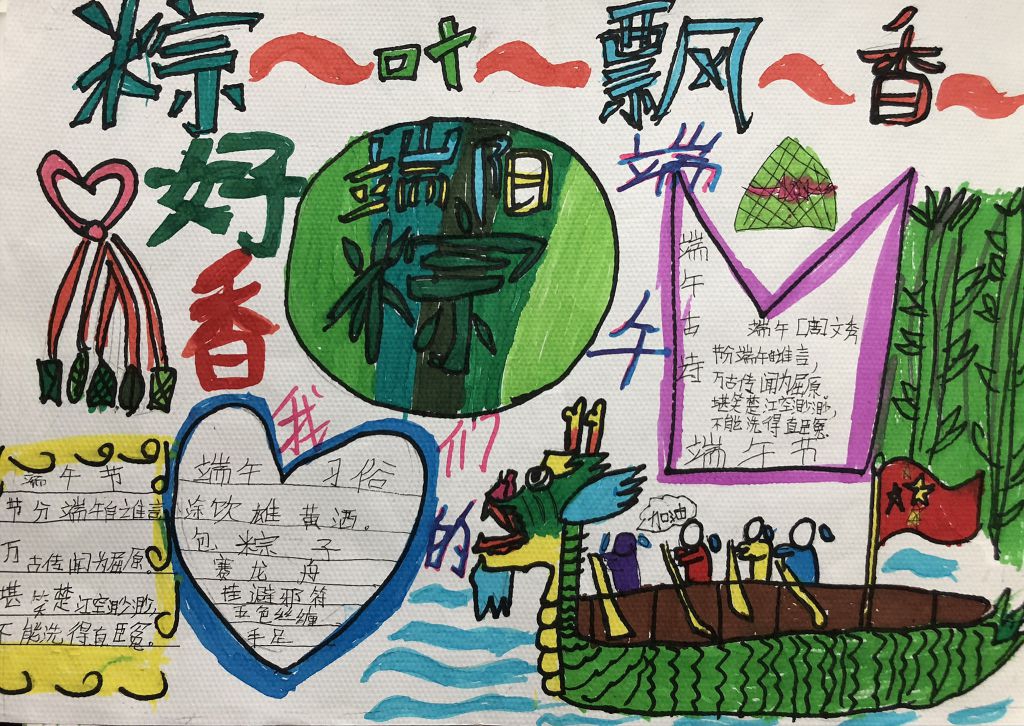 粽叶飘香
好香
端阳
粽
端午
我们的
端午古诗
端午 [唐]文秀
节分端午自谁言，
万古传闻为屈原。
堪笑楚江空渺渺，
不能洗得直臣冤。
端午节
加油
端午节
节分端午自谁言
万古传闻为屈原。
堪笑楚江空渺渺，
不能洗得直臣冤。
端午 习俗
涂饮雄黄酒。
包粽子
赛龙舟
挂避邪符
五色丝缠
手足